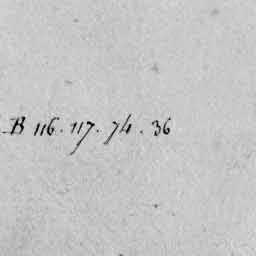 B 116. 117. 74. 36